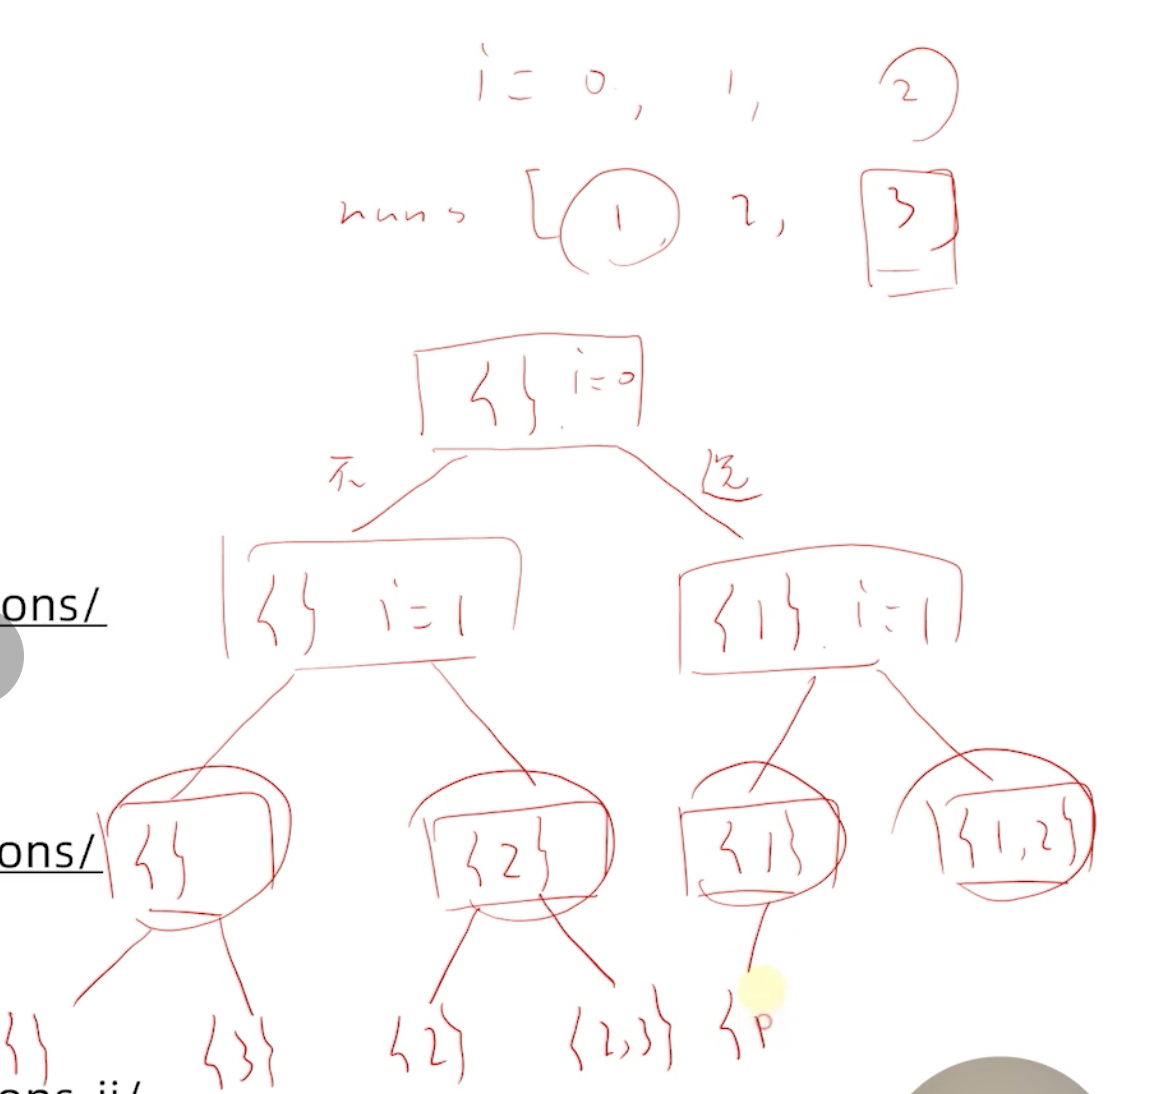 i = 0, 1, 2
nums [ 1 2, 3
{ } i=0
不 选
{ } i=1 {1} i=1
ons/
{ } {2} {1} {1,2}
ons/
{ } {3} {2} {2,3} {
ons-ii/